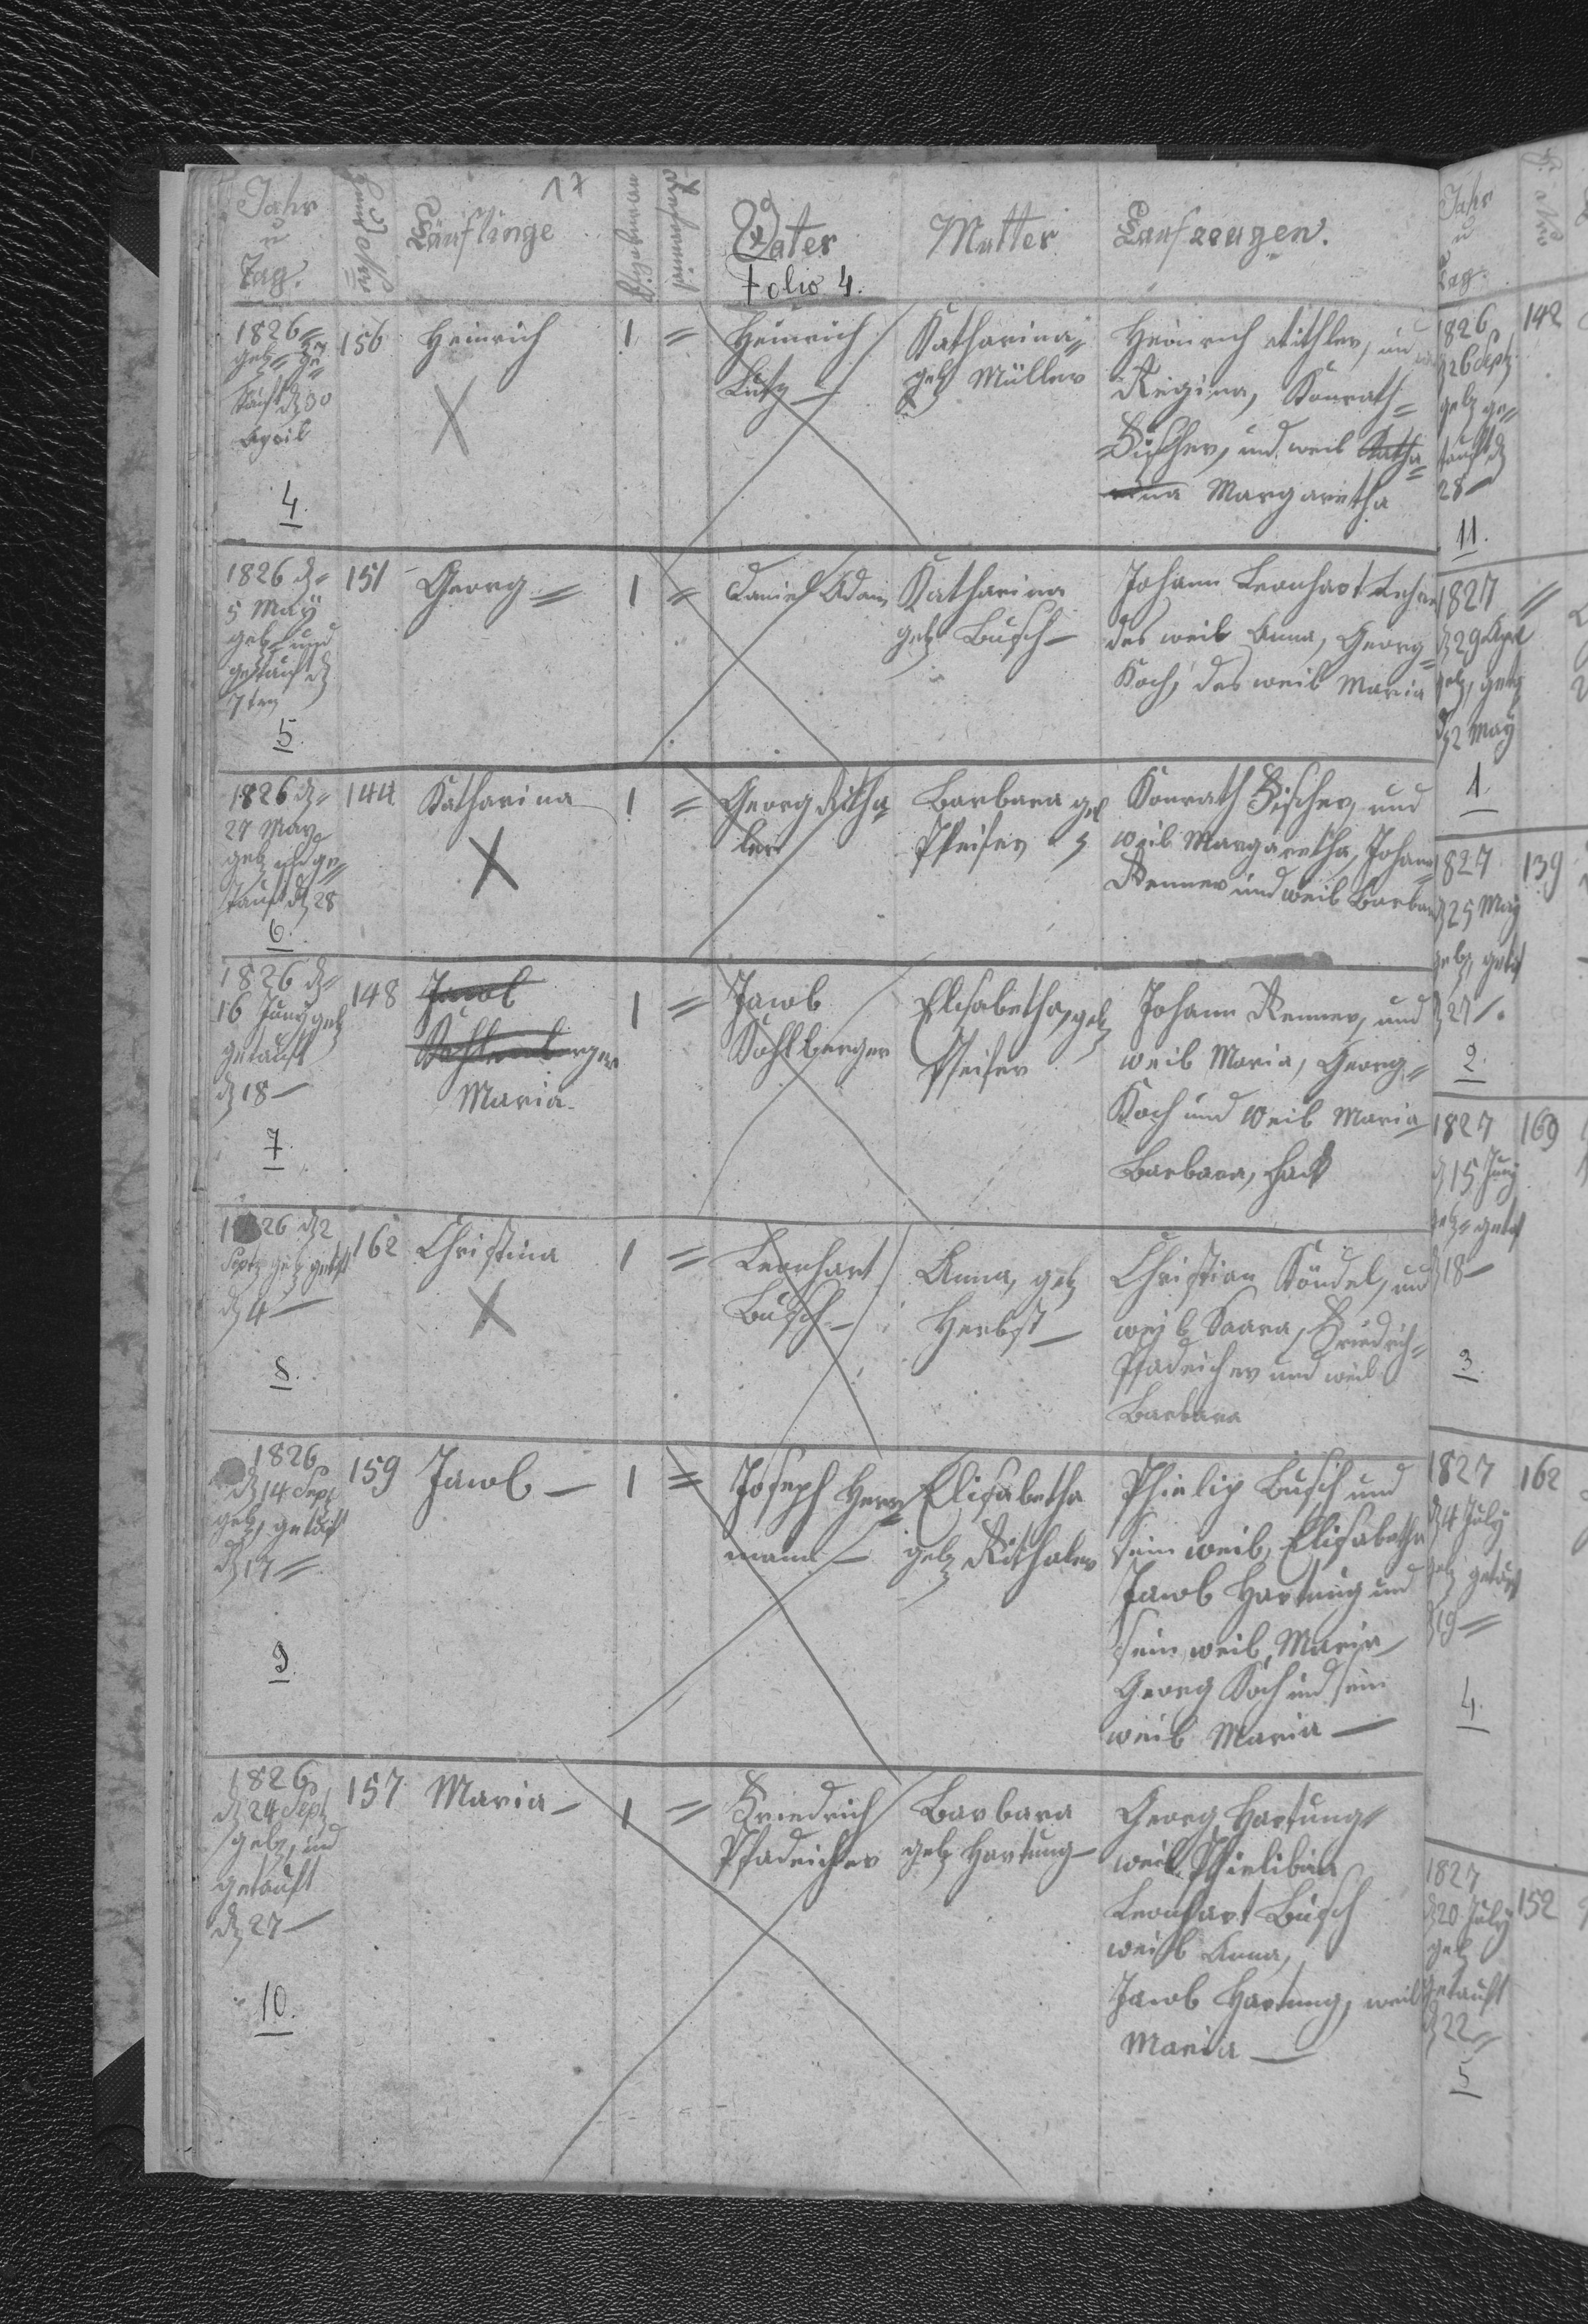 17
Jahr
u
Tag.
Täuflinge
Vater
Folio 4.
Mutter
Taufzeugen.
1826
156 Heinrich 1 =
getauft d 30
April
4.
Heinrich
Lutz
Katharina
geb Müller
Heinrich Rithler, und
Regina, Konrath
Fischer, und weib Katha
rina Margaretha
1826 d
5 May
geb und
getauft d
7ten
5.
151 Georg = 1 =
Daniel Adam
Katharina
geb Busch
Johann Leonhart
des weib Anna, Georg
Koch, des weib Maria
1826 d
27 May
geb und ge
tauft d 28
6.
144 Katharina 1 =
Georg Ritha
ler
Barbara geb
Pfeifer
Konrath Fischer, und
weib Margaretha, Johann
Renner und weib Barbara
1826 d
16 Juny geb
getauft
d 18
7.
148 Jacob
Maria
1 =
Jacob
Kohlberger
Elisabetha, geb
Pfeifer
Johann Renner, und
weib Maria, Georg
Koch und weib Maria
Barbara,
1826 d 2
Sept geb getauft
d 4
8.
162 Christina 1 =
Leonhart
Busch
Anna, geb
Herbst
Christian Köndel, und
weib Saara, Friedrich
Pfadeicher und weib
Barbara
1826
d 14 Sept
geb, getauft
d 17
9.
159 Jacob 1 =
Joseph Herr
mann
Elisabetha
geb Rithaler
Phielip Busch und
sein weib, Elisabetha
Jacob Hartung und
sein weib, Maria
Georg Koch und sein
weib Maria
1826
d 24 Sept
geb, und
getauft
d 27
10.
157 Maria 1 =
Friedrich
Pfadeicher
Barbara
geb Hartung
Georg Hartung
weib Phielibina
Leonhart Busch
weib Anna,
Jacob Hartung, weib
Maria
Jahr
u
Tag.
1826 142
d 26 Sept
geb ge
tauft d
28
11.
1827 =
d 29 Apr
geb, get
d 2 May
1.
1827 139
d 25 May
geb, getauft
d 27
2.
1827 169
d 15 Juny
geb getauft
d 18
3.
1827 162
d 4 July
geb getauft
d 19
4.
1827
d 20 July 152
geb
getauft
d 22
5